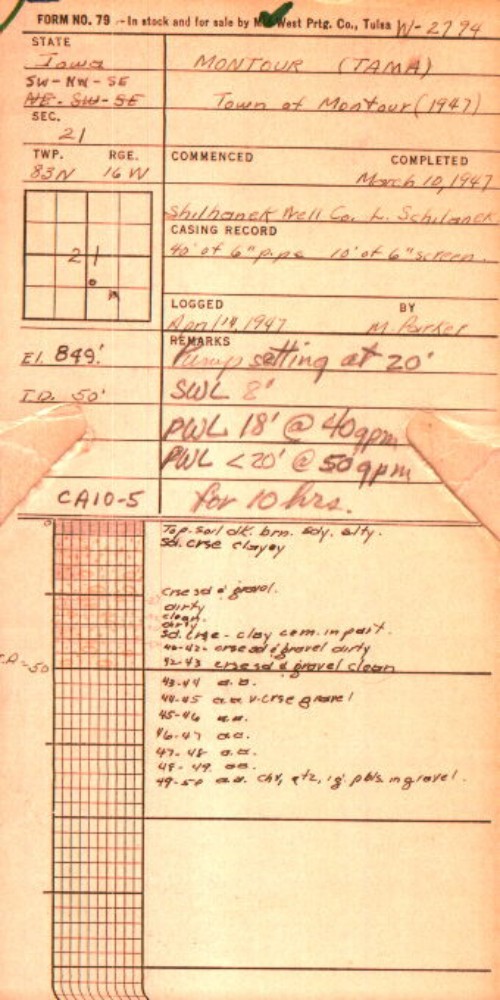 FORM NO. 79 -- In stock and for sale by Mid-West Prtg. Co., Tulsa W-2794
STATE
Iowa MONTOUR (TAMA)
SW-NW-SE
NE-SW-SE Town of Montour (1947)
SEC.
21
TWP. RGE. COMMENCED COMPLETED
83N 16W March 10, 1947
Shilhanek Well Co. L. Schilanek
CASING RECORD
21 40' of 6" pipe 10' of 6" screen.
LOGGED BY
April 14, 1947 M. Parker
REMARKS
El. 849' Pump setting at 20'
T.D. 50' SWL 8'
PWL 18' @ 40gpm
PWL <20' @ 50gpm
CA10-5 for 10 hrs.
0 Top-soil dk. brn. sdy. slty.
Sd. crse clayey
crse sd & gravel.
dirty
clean
dirty
sd. crse - clay cem. in part.
41-42- crse sd & gravel dirty
50 42-43 crse sd & gravel clean
43-44 a.a.
44-45 a.a v-crse gravel
45-46 a.a.
46-47 a.a.
47-48 a.a.
48-49 a.a.
49-50 a.a. cht, qtz, ig. pbls in gravel.